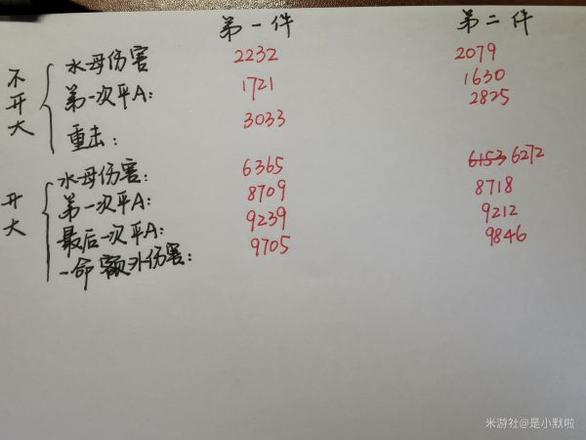 第一件 第二件
不开大
水母伤害 2232 2079
第一次平A: 1721 1630
重击: 3033 2825
开大
水母伤害: 6365 6153 6272
第一次平A: 8709 8718
最后一次平A: 9239 9212
一命额外伤害: 9705 9846
米游社@是小默啦